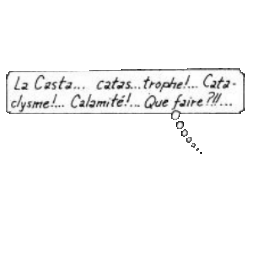 La Casta... catas...trophe!... Cata-
clysme!... Calamité!... Que faire?!!...